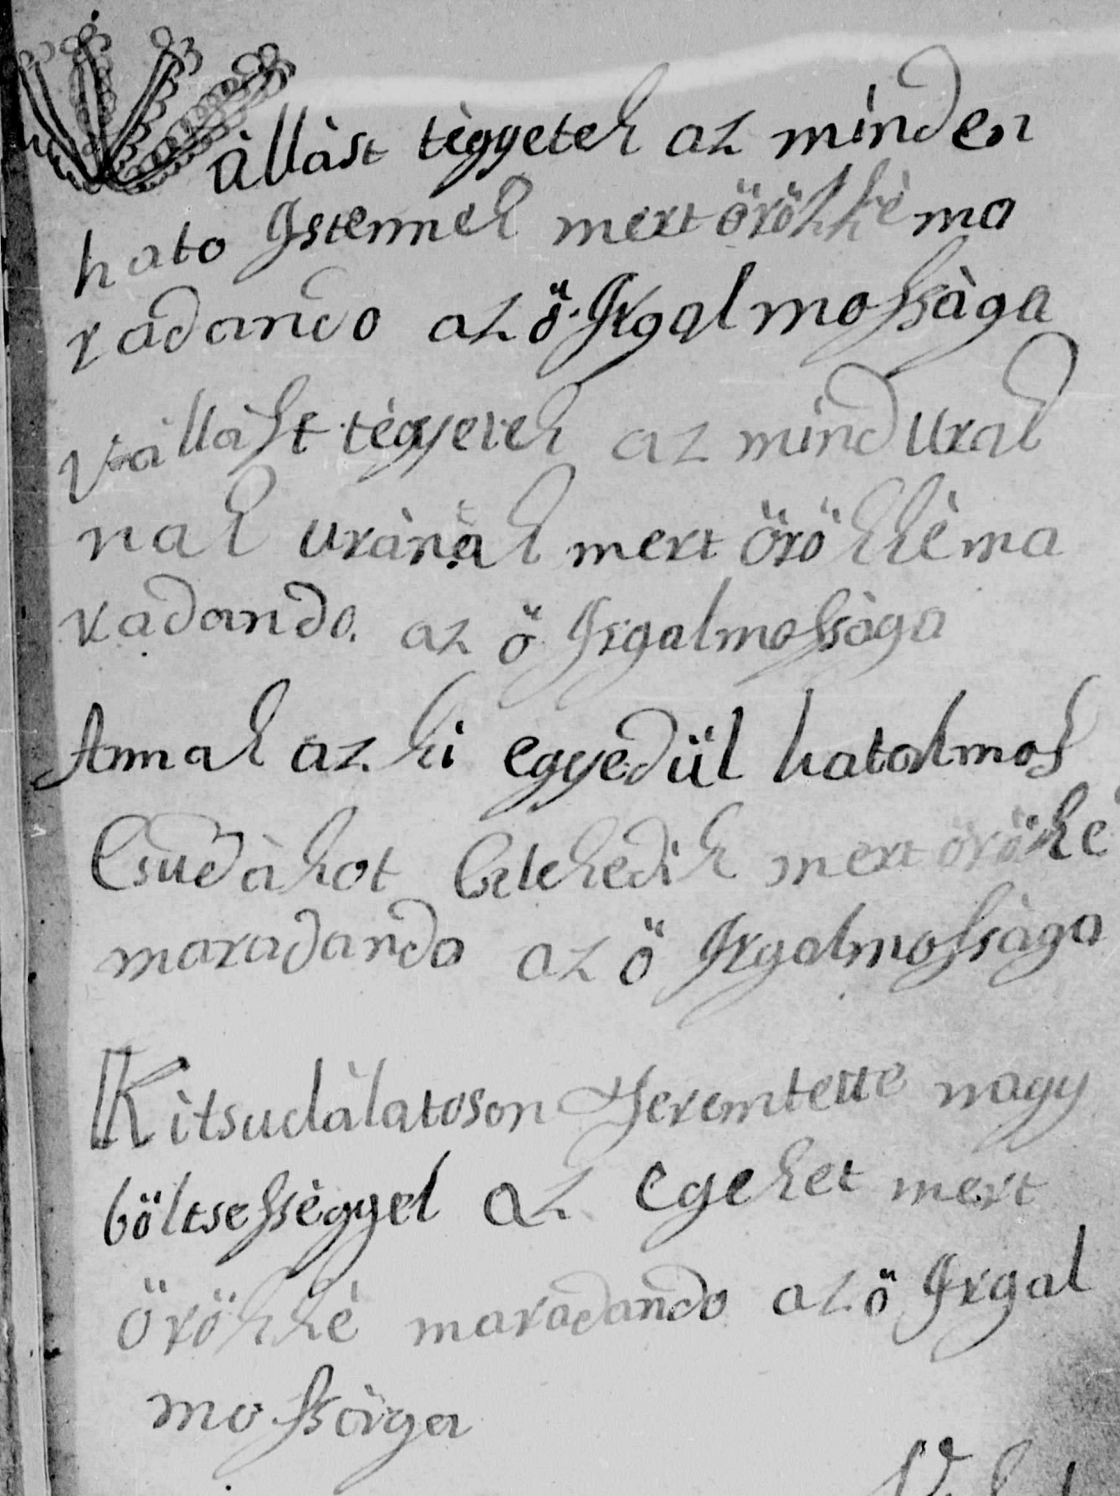 Vallàst tègyetek az minden
hato Istennek mert örökkè ma
radando az ö Irgalmossàga
Vallàst tègyetek az mind Urak
nak urànak mert örökkè ma
radando. az ö Irgalmossàga
Annak az ki egyedül hatalmos
Csudàkot Cselekedik mert örökè
maradando az ö Irgalmossàga
Ki tsudàlatoson Teremtette nagy
böltsessèggel az egeket mert
örökkè maradando az ö Irgal
mossàga